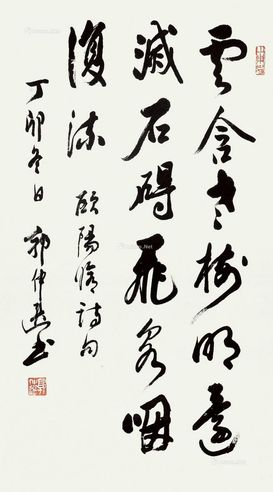 雲含老樹明還
滅石碍飛泉咽
復流 歐陽脩詩句
丁卯冬日 郭仲選書